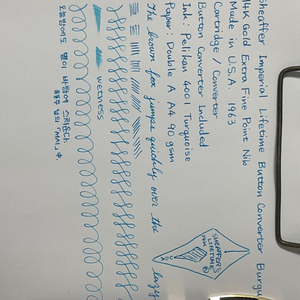 Sheaffer Imperial Lifetime Button Converter Burgu
14K Gold Extra Fine Point Nib
Made in U.S.A. 1963
Cartridge / Converter
Button Converter Included
Ink: Pelikan 4001 Turquoise
Paper: Double A A4 90 gsm
The brown fox jumps quickly over the lazy
wetness
오늘밤에도 별이 바람에 스치운다.
SHEAFFER'S
LIFETIME